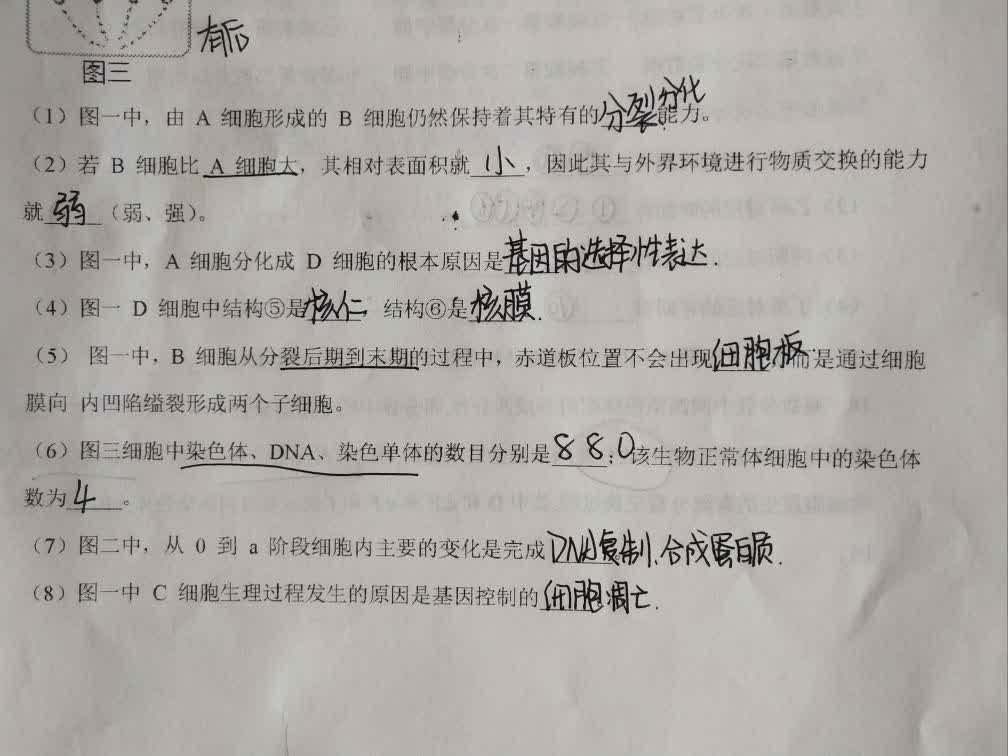 有后
图三
（1）图一中，由 A 细胞形成的 B 细胞仍然保持着其特有的分裂分化能力。
（2）若 B 细胞比 A 细胞大，其相对表面积就小，因此其与外界环境进行物质交换的能力
就弱（弱、强）。
（3）图一中，A 细胞分化成 D 细胞的根本原因是基因的选择性表达.
（4）图一 D 细胞中结构⑤是核仁，结构⑥是核膜.
（5） 图一中，B 细胞从分裂后期到末期的过程中，赤道板位置不会出现细胞板，而是通过细胞
膜向 内凹陷缢裂形成两个子细胞。
（6）图三细胞中染色体、DNA、染色单体的数目分别是 8 8 0；该生物正常体细胞中的染色体
数为4。
（7）图二中，从 0 到 a 阶段细胞内主要的变化是完成DNA复制、合成蛋白质.
（8）图一中 C 细胞生理过程发生的原因是基因控制的细胞凋亡.